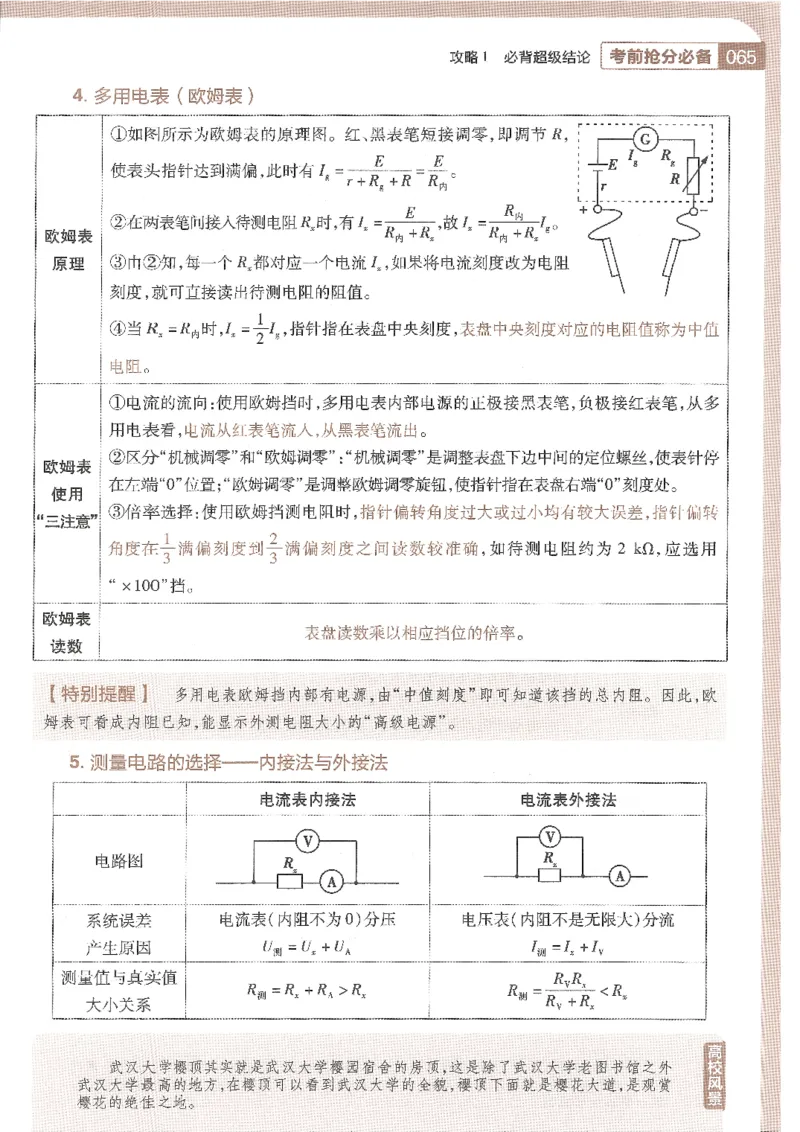 攻略Ⅰ 必背超级结论 考前抢分必备 065
4. 多用电表（欧姆表）
欧姆表
原理
①如图所示为欧姆表的原理图。红、黑表笔短接调零,即调节 R,
使表头指针达到满偏,此时有 I_g = E/(r+R_g+R) = E/R_内。
②在两表笔间接入待测电阻 R_x时,有 I_x = E/(R_内+R_x),故 I_x = R_内/(R_内+R_x) I_g。
③由②知,每一个 R_x都对应一个电流 I_x,如果将电流刻度改为电阻
刻度,就可直接读出待测电阻的阻值。
④当 R_x = R_内时,I_x = 1/2 I_g,指针指在表盘中央刻度,表盘中央刻度对应的电阻值称为中值
电阻。
G
E
I_g
R_g
r
R
+
−
欧姆表
使用
“三注意”
①电流的流向:使用欧姆挡时,多用电表内部电源的正极接黑表笔,负极接红表笔,从多
用电表看,电流从红表笔流入,从黑表笔流出。
②区分“机械调零”和“欧姆调零”:“机械调零”是调整表盘下边中间的定位螺丝,使表针停
在左端“0”位置;“欧姆调零”是调整欧姆调零旋钮,使指针指在表盘右端“0”刻度处。
③倍率选择:使用欧姆挡测电阻时,指针偏转角度过大或过小均有较大误差,指针偏转
角度在 1/3 满偏刻度到 2/3 满偏刻度之间读数较准确,如待测电阻约为 2 kΩ,应选用
“ ×100”挡。
欧姆表
读数
表盘读数乘以相应挡位的倍率。
【特别提醒】 多用电表欧姆挡内部有电源,由“中值刻度”即可知道该挡的总内阻。因此,欧
姆表可看成内阻已知,能显示外测电阻大小的“高级电源”。
5. 测量电路的选择——内接法与外接法
电流表内接法 电流表外接法
电路图
V
R_x
A
V
R_x
A
系统误差
产生原因
电流表(内阻不为0)分压
U_测 = U_x + U_A
电压表(内阻不是无限大)分流
I_测 = I_x + I_V
测量值与真实值
大小关系
R_测 = R_x + R_A > R_x
R_测 = R_V R_x/(R_V + R_x) < R_x
武汉大学樱顶其实就是武汉大学樱园宿舍的房顶,这是除了武汉大学老图书馆之外
武汉大学最高的地方,在樱顶可以看到武汉大学的全貌,樱顶下面就是樱花大道,是观赏
樱花的绝佳之地。
高校风景